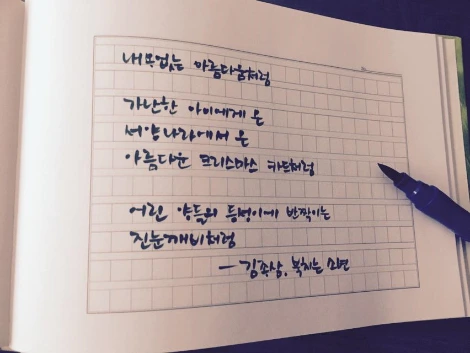 내용없는 아름다움처럼
가난한 아이에게 온
서양나라에서 온
아름다운 크리스마스 카드처럼
어린 양들의 등성이에 반짝이는
진눈깨비처럼
— 김종삼, 북치는 소년